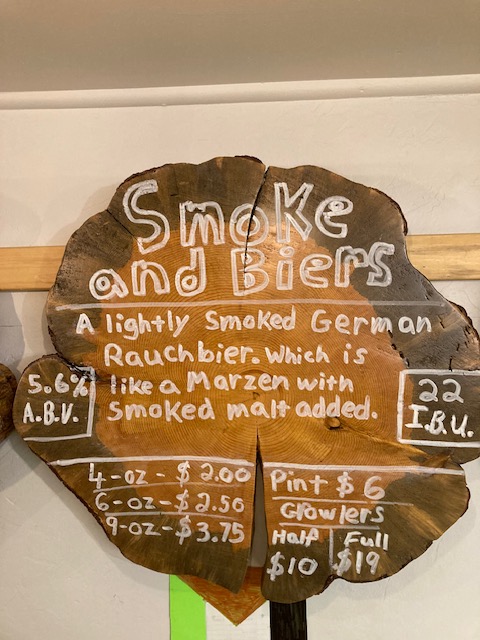 Smoke
and Biers
A lightly Smoked German
Rauchbier. Which is
like a Marzen with
smoked malt added.
5.6%
A.B.V.
22
I.B.U.
4-oz-$2.00
6-oz-$2.50
9-oz-$3.75
Pint $6
Growlers
Half Full
$10 $19